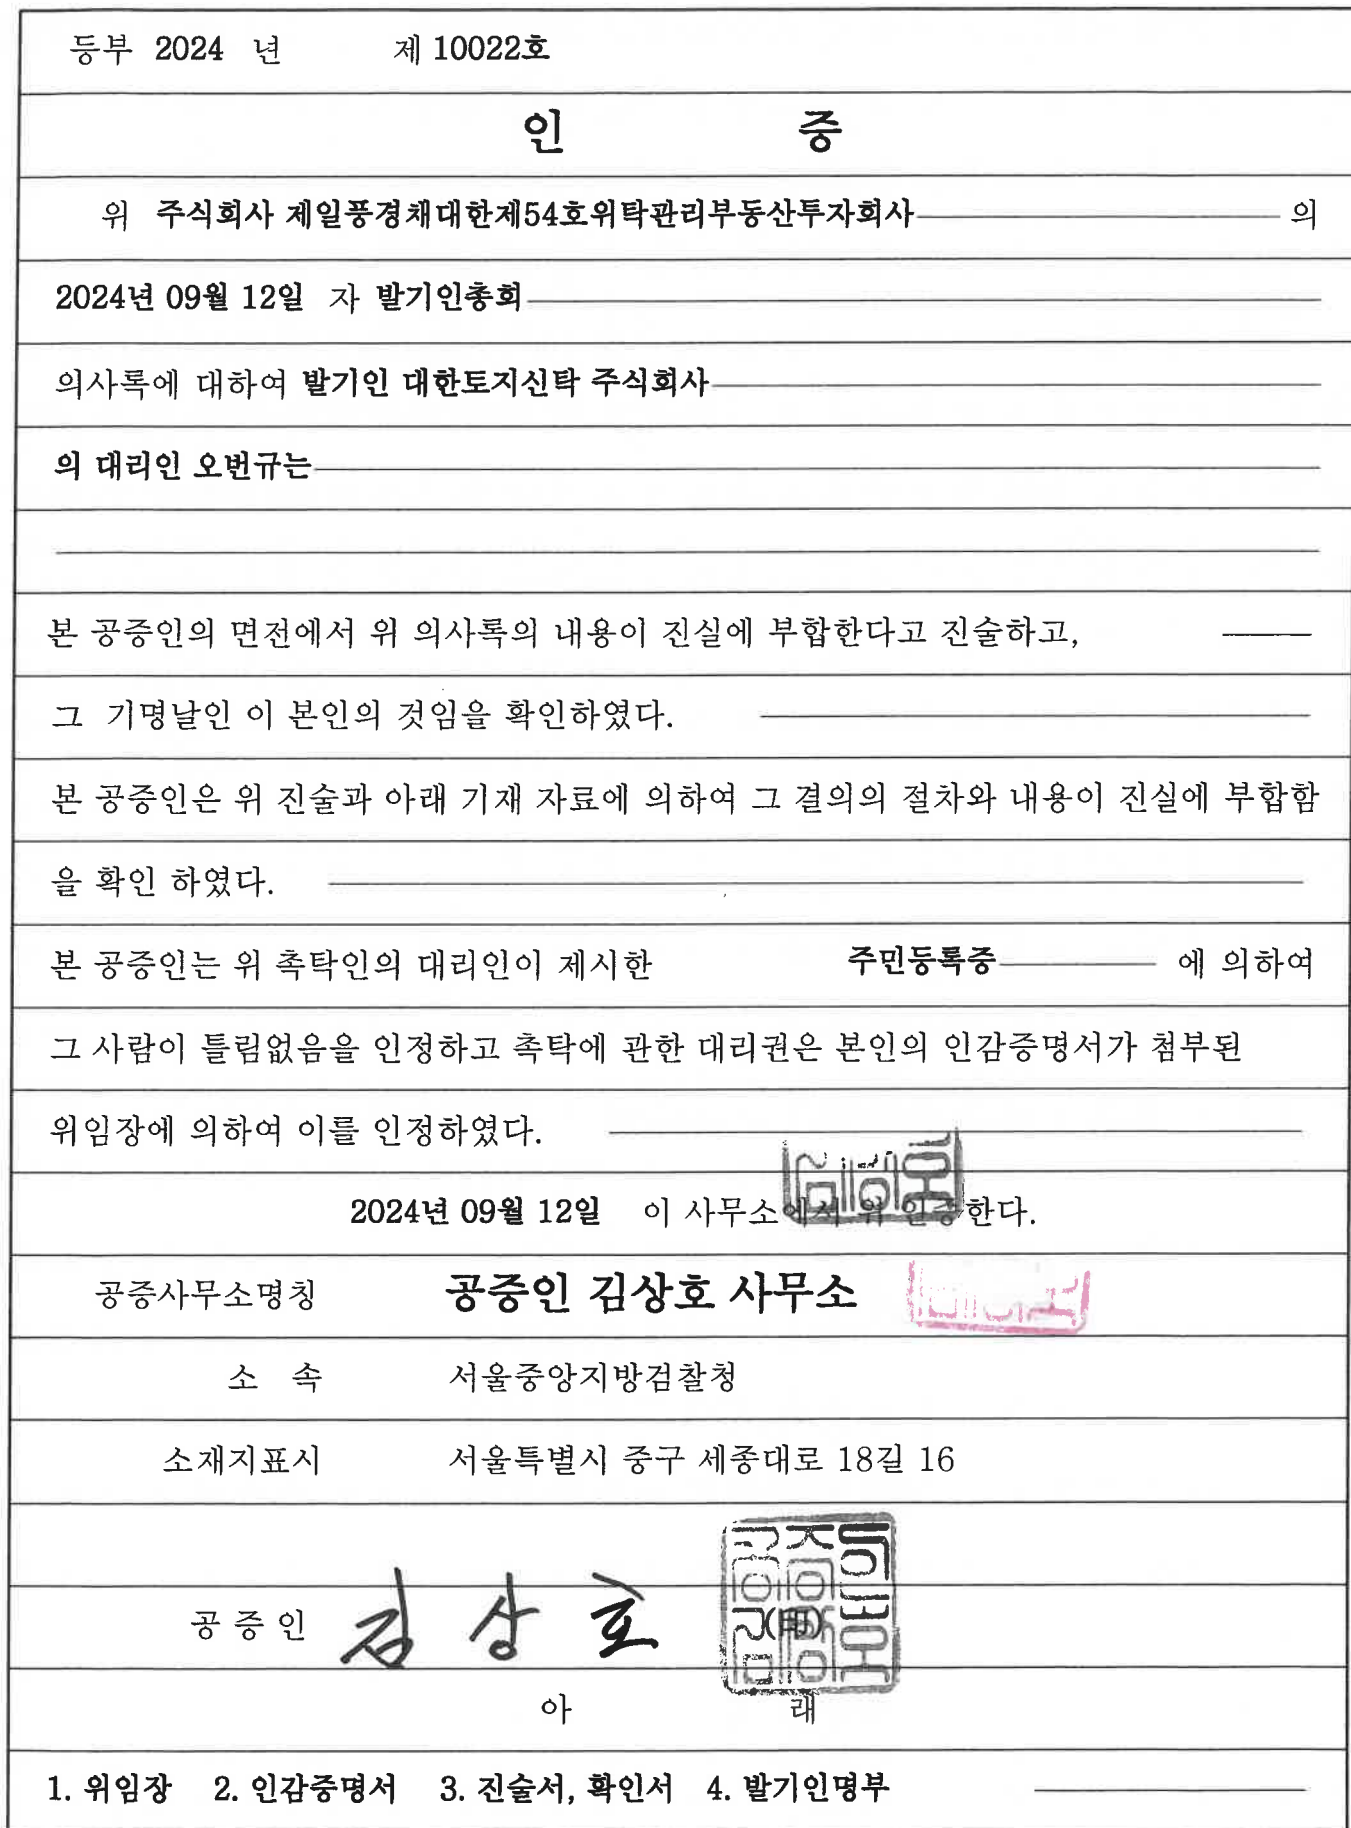 등부 2024 년 제 10022호
인 증
위 주식회사 제일풍경채대한제54호위탁관리부동산투자회사 의
2024년 09월 12일 자 발기인총회
의사록에 대하여 발기인 대한토지신탁 주식회사
의 대리인 오번규는
본 공증인의 면전에서 위 의사록의 내용이 진실에 부합한다고 진술하고,
그 기명날인 이 본인의 것임을 확인하였다.
본 공증인은 위 진술과 아래 기재 자료에 의하여 그 결의의 절차와 내용이 진실에 부합함
을 확인 하였다.
본 공증인는 위 촉탁인의 대리인이 제시한 주민등록증 에 의하여
그 사람이 틀림없음을 인정하고 촉탁에 관한 대리권은 본인의 인감증명서가 첨부된
위임장에 의하여 이를 인정하였다.
2024년 09월 12일 이 사무소에서 위 인증한다.
공증사무소명칭 공증인 김상호 사무소
소 속 서울중앙지방검찰청
소재지표시 서울특별시 중구 세종대로 18길 16
공 증 인 김 상 호 (印)
아 래
1. 위임장 2. 인감증명서 3. 진술서, 확인서 4. 발기인명부